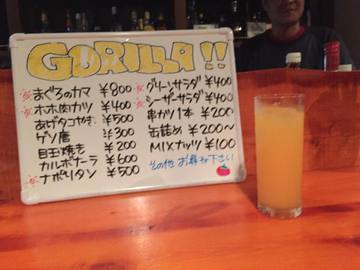 GORILLA!!
まぐろのカマ ¥800
ホホ肉カツ ¥400
あげタコやき ¥500
ゲソ唐 ¥300
目玉焼き ¥200
カルボナーラ ¥600
ナポリタン ¥500
グリーンサラダ ¥400
シーザーサラダ ¥400
串かつ1本 ¥200
缶詰め ¥200~
MIXナッツ ¥100
その他 お尋ね下さい